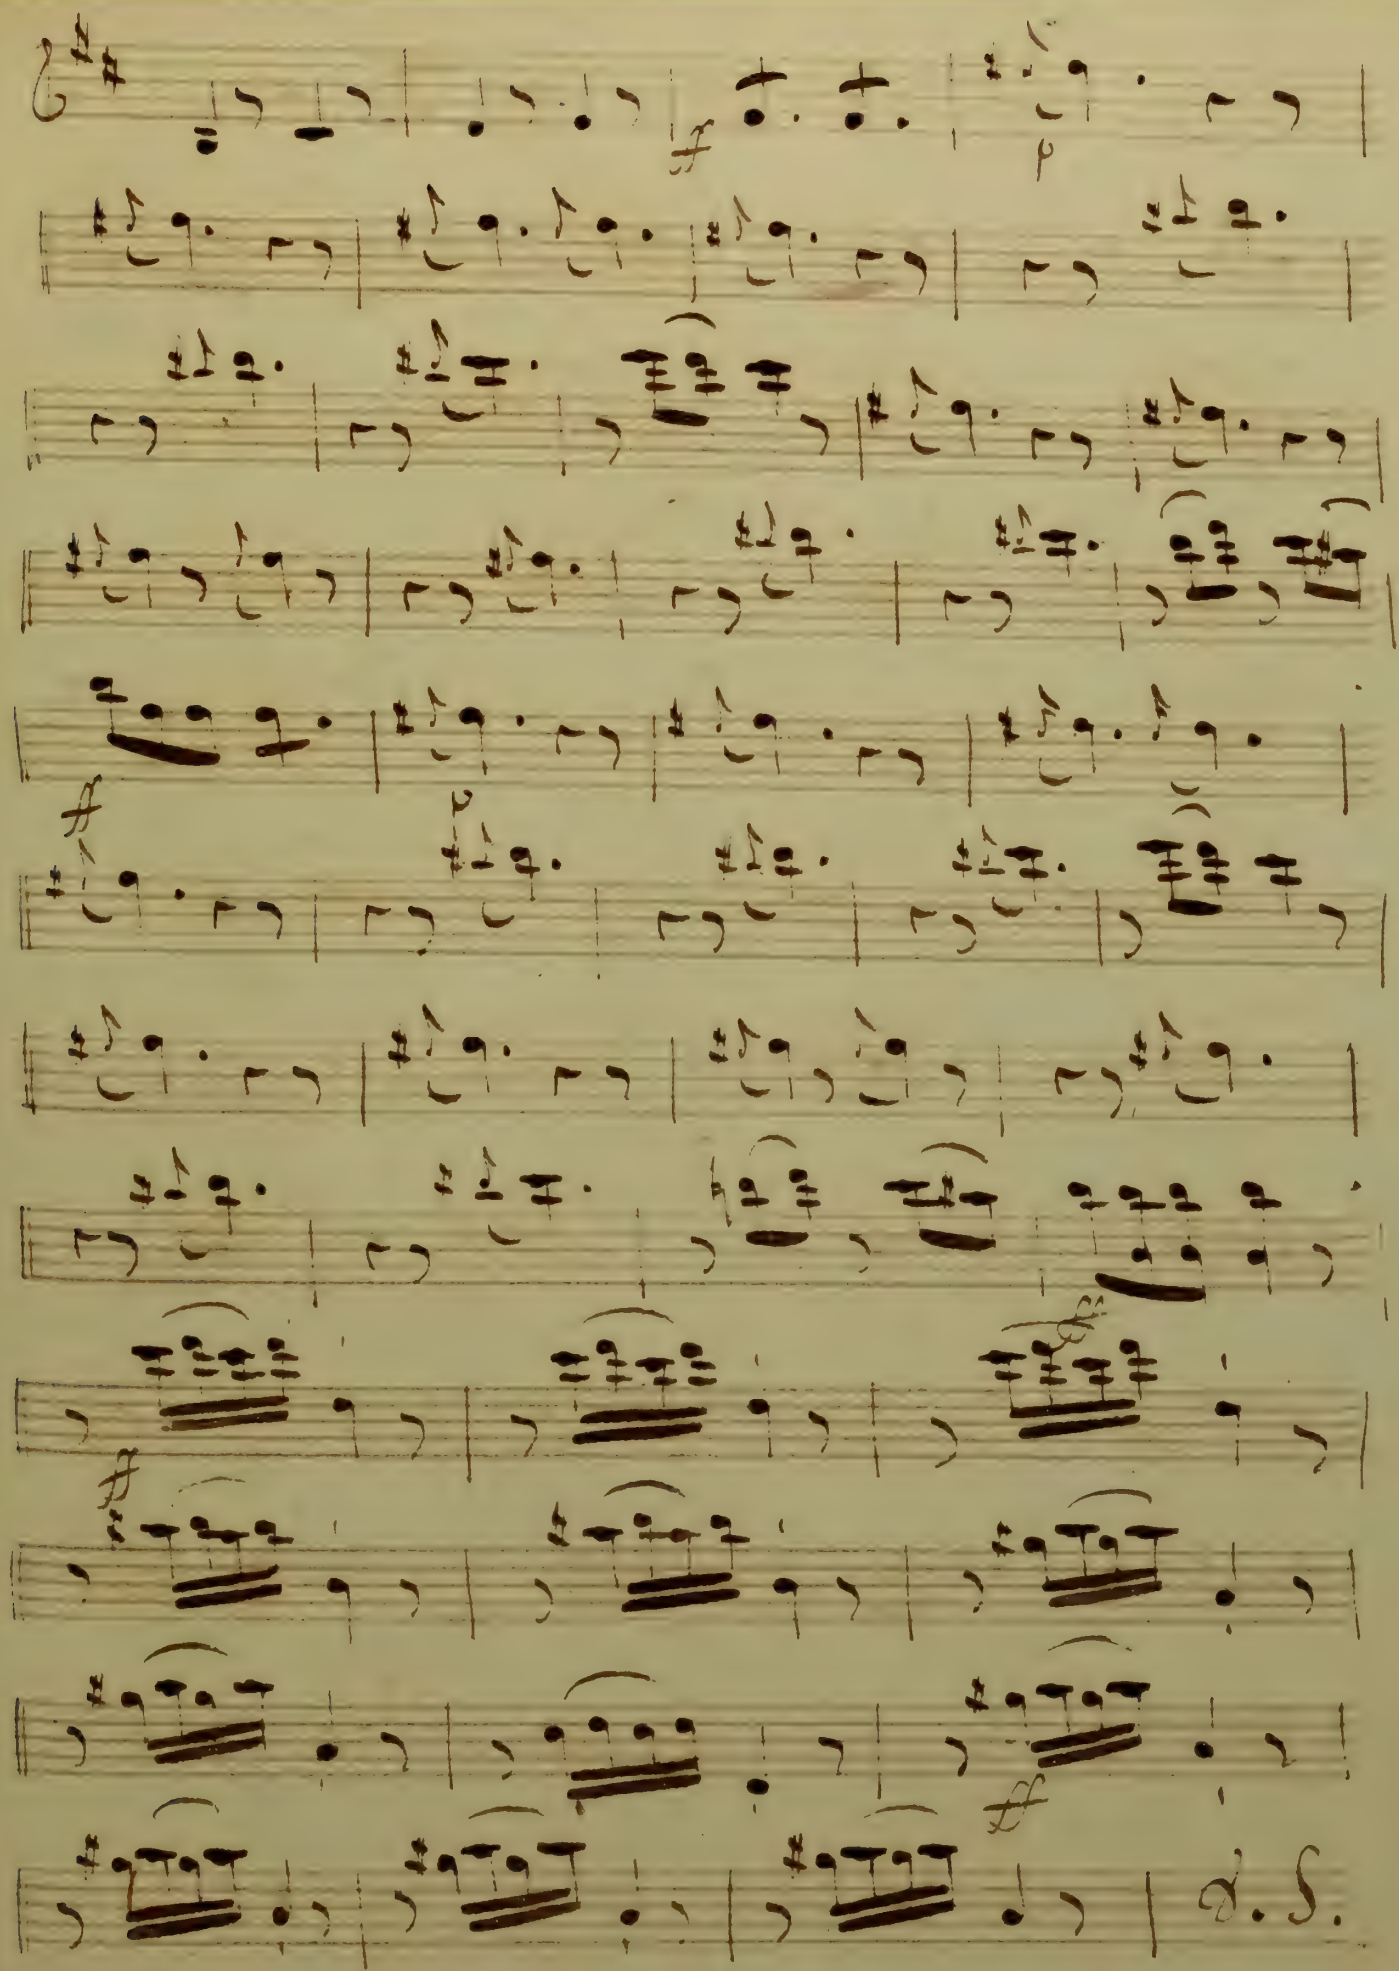 ff p
ff
p
ff
ff
ff
D. S.